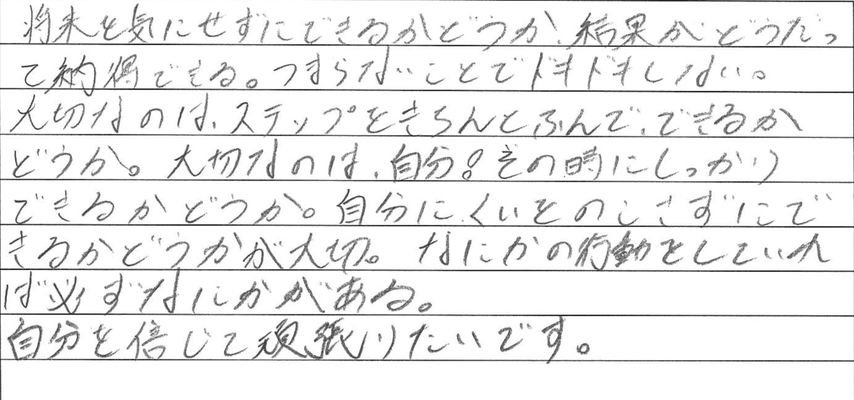 将来を気にせずにできるかどうか、結果がどうだっ
て納得できる。つまらないことでドキドキしない。
大切なのは、ステップをきちんとふんで、できるか
どうか。大切なのは、自分。その時にしっかり
できるかどうか。自分にくいをのこさずにで
きるかどうかが大切。なにかの行動をしていれ
ば必ずなにかがある。
自分を信じて頑張りたいです。